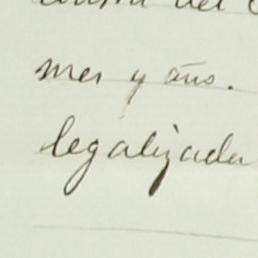 del
mes y año.
legalizada